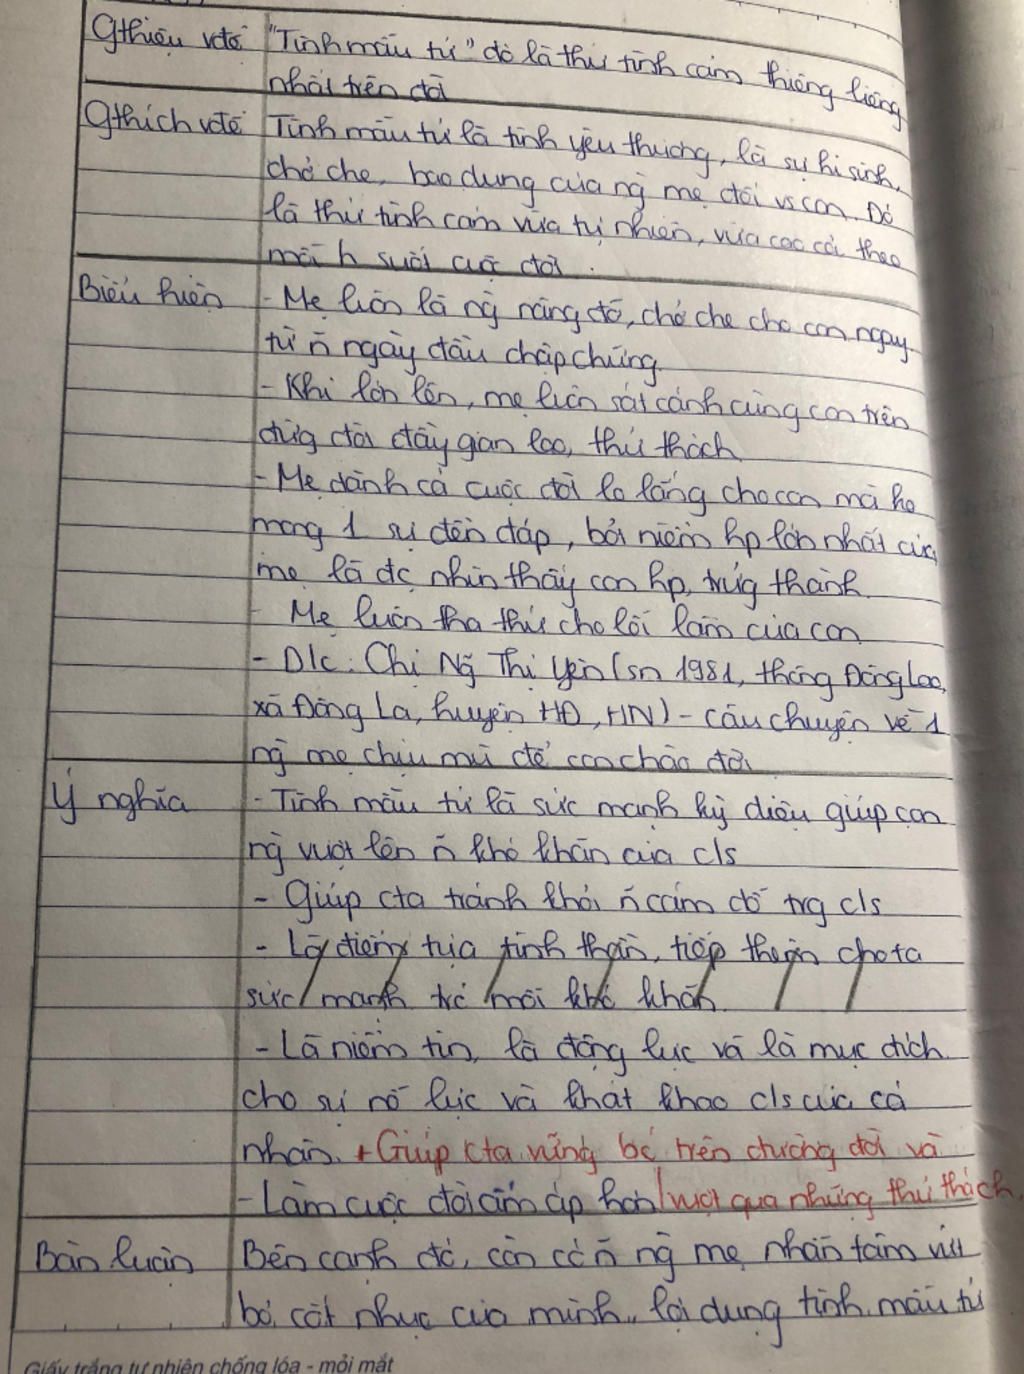 Gthiệu vđề "Tình mẫu tử" đó là thứ tình cảm thiêng liêng
nhất trên đời
Gthích vđề Tình mẫu tử là tình yêu thương, là sự hi sinh,
chở che, bao dung của ng mẹ đối vs con. Đó
là thứ tình cảm vừa tự nhiên, vừa cao cả theo
mãi suốt cuộc đời.
Biểu hiện - Mẹ luôn là ng nâng đỡ, chở che cho con ngay
từ ~n ngày đầu chập chững
- Khi lớn lên, mẹ luôn sát cánh cùng con trên
đg đời đầy gian lao, thử thách
- Mẹ dành cả cuộc đời lo lắng cho con mà ko
mong 1 sự đền đáp, bởi niềm hp lớn nhất của
mẹ là đc nhìn thấy con hp, trưởng thành.
- Mẹ luôn tha thứ cho lỗi lầm của con
- D/c: Chị Ng Thị Yên (sn 1981, thôn Đồng Lao,
xã Đông La, huyện HĐ, HN) - câu chuyện về 1
ng mẹ chịu mù để con chào đời
Ý nghĩa - Tình mẫu tử là sức mạnh kỳ diệu giúp con
ng vượt lên ~n khó khăn của c/s
- Giúp cta tránh khỏi ~n cám dỗ trg c/s
- Là điểm tựa tinh thần, tiếp thêm cho ta
sức mạnh trc mỗi khó khăn
- Là niềm tin, là động lực và là mục đích
cho sự nỗ lực và khát khao c/s của cá
nhân. + Giúp cta vững bc trên đường đời và
- Làm cuộc đời ấm áp hơn / vượt qua những thử thách.
Bàn luận Bên cạnh đó, còn có ~n ng mẹ nhẫn tâm vứt
bỏ cốt nhục của mình, lợi dụng tình mẫu tử
Giấy trắng tự nhiên chống lóa - mỏi mắt